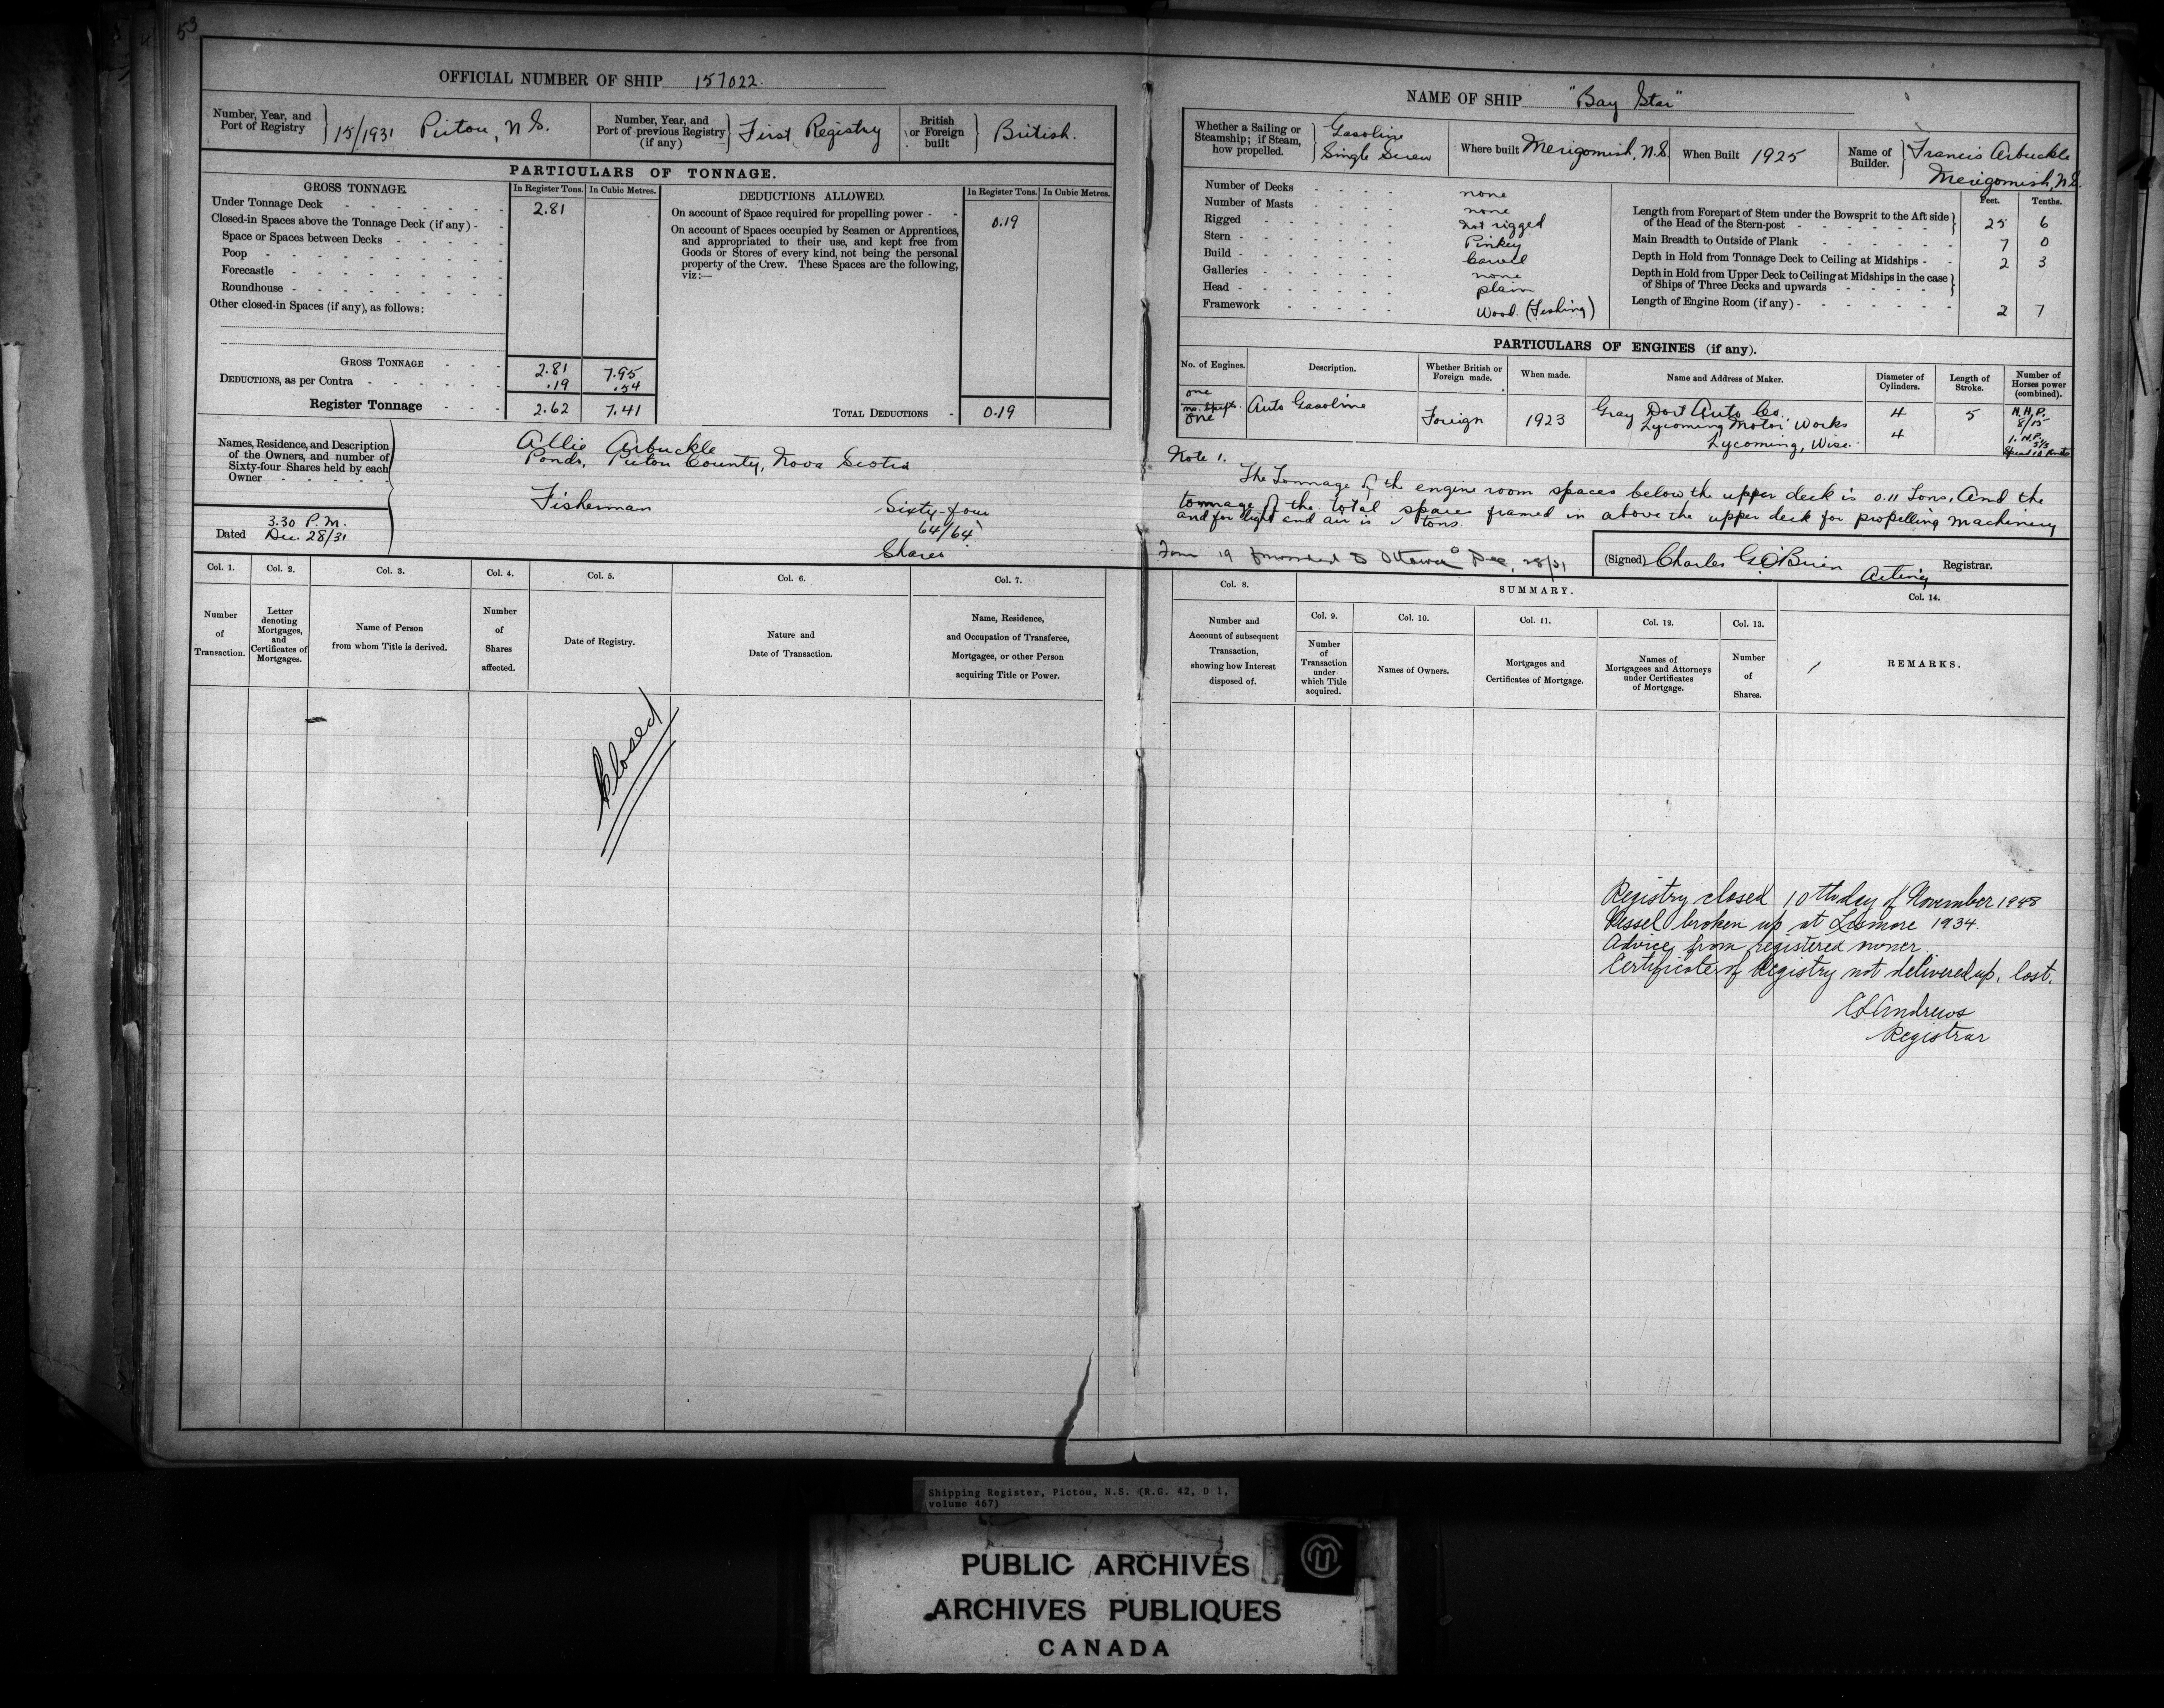 53
OFFICIAL NUMBER OF SHIP 157022.
Number, Year, and Port of Registry } 15/1931 Pictou, N.S.
Number, Year, and Port of previous Registry (if any) } First Registry
British or Foreign built } British.
PARTICULARS OF TONNAGE.
GROSS TONNAGE. In Register Tons. In Cubic Metres.
Under Tonnage Deck 2.81
Closed-in Spaces above the Tonnage Deck (if any)
Space or Spaces between Decks
Poop
Forecastle
Roundhouse
Other closed-in Spaces (if any), as follows:
GROSS TONNAGE 2.81 7.95
DEDUCTIONS, as per Contra .19 .54
Register Tonnage 2.62 7.41
DEDUCTIONS ALLOWED. In Register Tons. In Cubic Metres.
On account of Space required for propelling power 0.19
On account of Spaces occupied by Seamen or Apprentices,
and appropriated to their use, and kept free from
Goods or Stores of every kind, not being the personal
property of the Crew. These Spaces are the following,
viz:—
TOTAL DEDUCTIONS 0.19
Names, Residence, and Description
of the Owners, and number of
Sixty-four Shares held by each
Owner
Allie Arbuckle
Ponds, Pictou County, Nova Scotia
Fisherman Sixty-four
64/64
Shares
Dated 3.30 P.M.
Dec. 28/31
Col. 1. Col. 2. Col. 3. Col. 4. Col. 5. Col. 6. Col. 7.
Number of Transaction.
Letter denoting Mortgages, and Certificates of Mortgages.
Name of Person from whom Title is derived.
Number of Shares affected.
Date of Registry.
Nature and Date of Transaction.
Name, Residence, and Occupation of Transferee, Mortgagee, or other Person acquiring Title or Power.
Closed
NAME OF SHIP "Bay Star"
Whether a Sailing or Steamship; if Steam, how propelled. } Gasoline Single Screw
Where built Merigomish, N.S.
When Built 1925
Name of Builder. } Francis Arbuckle Merigomish, N.S.
Number of Decks none
Number of Masts none
Rigged Not rigged
Stern Pinkey
Build Carvel
Galleries none
Head plain
Framework Wood. (Fishing)
Feet. Tenths.
Length from Forepart of Stem under the Bowsprit to the Aft side of the Head of the Stern-post 25 6
Main Breadth to Outside of Plank 7 0
Depth in Hold from Tonnage Deck to Ceiling at Midships 2 3
Depth in Hold from Upper Deck to Ceiling at Midships in the case of Ships of Three Decks and upwards
Length of Engine Room (if any) 2 7
PARTICULARS OF ENGINES (if any).
No. of Engines. Description. Whether British or Foreign made. When made. Name and Address of Maker. Diameter of Cylinders. Length of Stroke. Number of Horses power (combined).
one
no. Shafts.
one
Auto Gasoline
Foreign
1923
Gray Dort Auto Co.
Lycoming Motor Works
Lycoming, Wisc.
4
4
5
N.H.P.
8/15
I.H.P.
Note 1.
The Tonnage of the engine room spaces below the upper deck is 0.11 Tons, and the
tonnage of the total spaces framed in above the upper deck for propelling machinery
and for light and air is tons.
Form 19 forwarded to Ottawa Dec. 28/31
(Signed) Charles G. O'Brien Acting Registrar.
Col. 8. SUMMARY. Col. 14.
Col. 9. Col. 10. Col. 11. Col. 12. Col. 13.
Number and Account of subsequent Transaction, showing how Interest disposed of.
Number of Transaction under which Title acquired.
Names of Owners.
Mortgages and Certificates of Mortgage.
Names of Mortgagees and Attorneys under Certificates of Mortgage.
Number of Shares.
REMARKS.
Registry closed 10th day of November 1948
Vessel broken up at Lismore 1934.
Advice from registered owner.
Certificate of Registry not delivered up, lost.
Andrews
Registrar
Shipping Register, Pictou, N.S. (R.G. 42, D 1,
volume 467)
PUBLIC ARCHIVES
ARCHIVES PUBLIQUES
CANADA